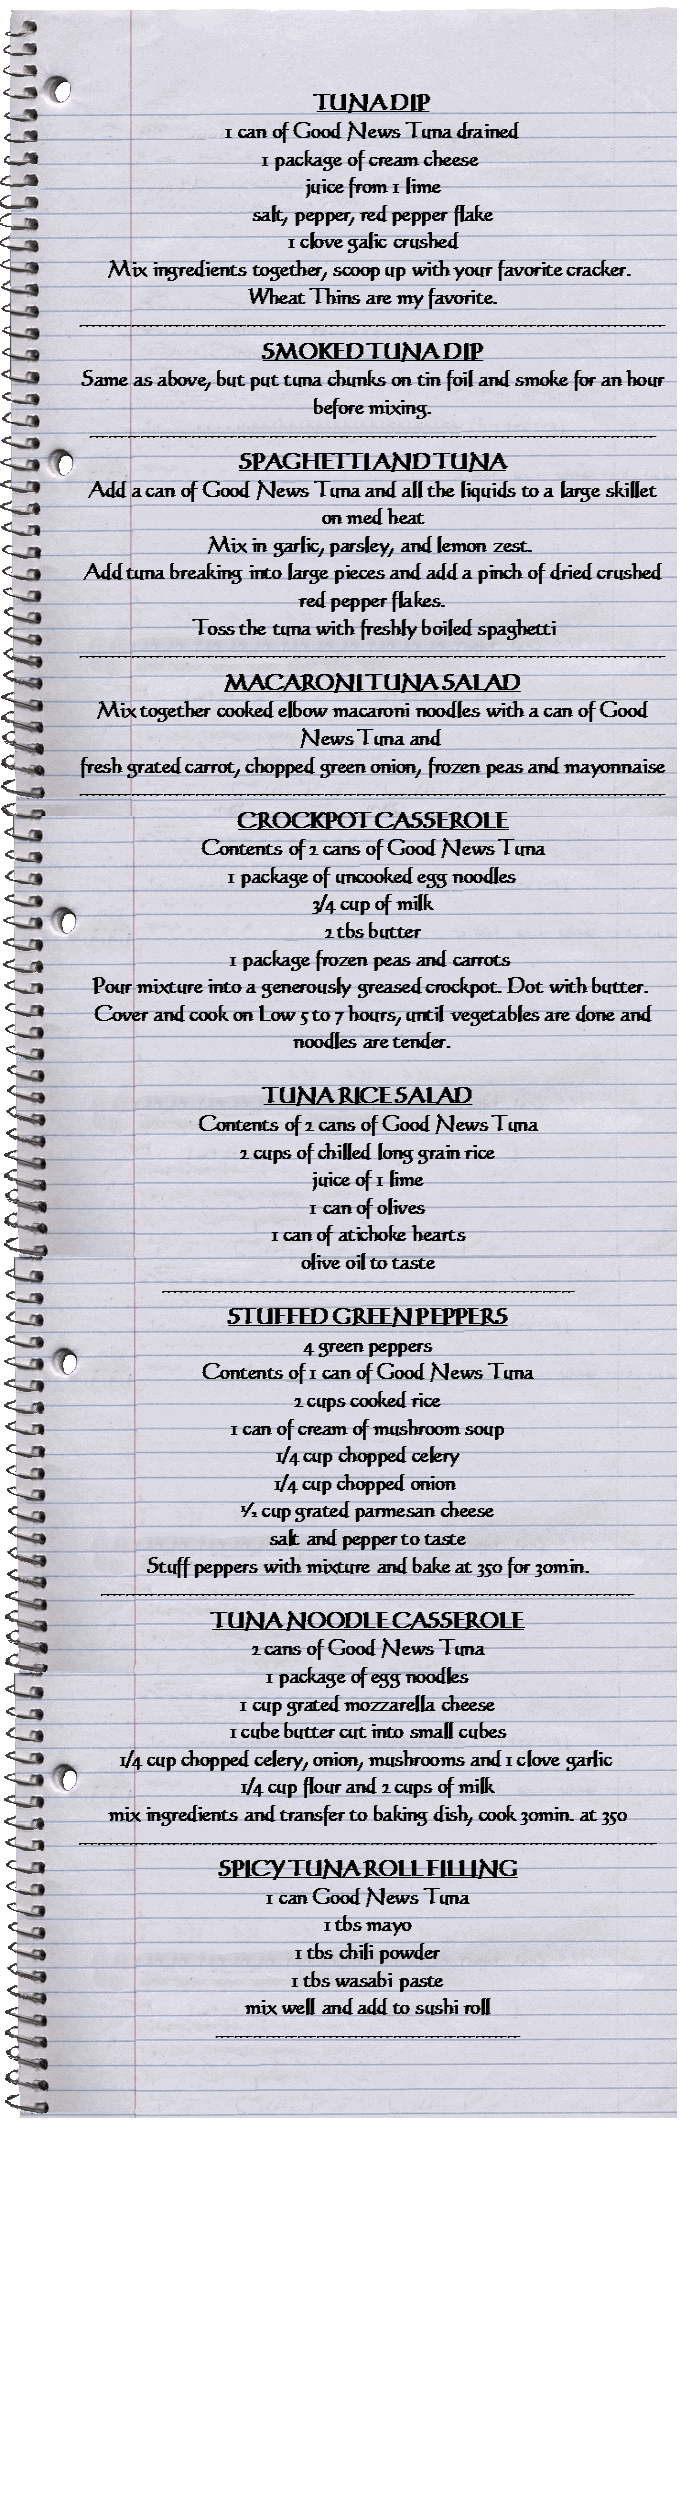 TUNA DIP
1 can of Good News Tuna drained
1 package of cream cheese
juice from 1 lime
salt, pepper, red pepper flake
1 clove galic crushed
Mix ingredients together, scoop up with your favorite cracker.
Wheat Thins are my favorite.
SMOKED TUNA DIP
Same as above, but put tuna chunks on tin foil and smoke for an hour
before mixing.
SPAGHETTI AND TUNA
Add a can of Good News Tuna and all the liquids to a large skillet
on med heat
Mix in garlic, parsley, and lemon zest.
Add tuna breaking into large pieces and add a pinch of dried crushed
red pepper flakes.
Toss the tuna with freshly boiled spaghetti
MACARONI TUNA SALAD
Mix together cooked elbow macaroni noodles with a can of Good
News Tuna and
fresh grated carrot, chopped green onion, frozen peas and mayonnaise
CROCKPOT CASSEROLE
Contents of 2 cans of Good News Tuna
1 package of uncooked egg noodles
3/4 cup of milk
2 tbs butter
1 package frozen peas and carrots
Pour mixture into a generously greased crockpot. Dot with butter.
Cover and cook on Low 5 to 7 hours, until vegetables are done and
noodles are tender.
TUNA RICE SALAD
Contents of 2 cans of Good News Tuna
2 cups of chilled long grain rice
juice of 1 lime
1 can of olives
1 can of atichoke hearts
olive oil to taste
STUFFED GREEN PEPPERS
4 green peppers
Contents of 1 can of Good News Tuna
2 cups cooked rice
1 can of cream of mushroom soup
1/4 cup chopped celery
1/4 cup chopped onion
½ cup grated parmesan cheese
salt and pepper to taste
Stuff peppers with mixture and bake at 350 for 30min.
TUNA NOODLE CASSEROLE
2 cans of Good News Tuna
1 package of egg noodles
1 cup grated mozzarella cheese
1 cube butter cut into small cubes
1/4 cup chopped celery, onion, mushrooms and 1 clove garlic
1/4 cup flour and 2 cups of milk
mix ingredients and transfer to baking dish, cook 30min. at 350
SPICY TUNA ROLL FILLING
1 can Good News Tuna
1 tbs mayo
1 tbs chili powder
1 tbs wasabi paste
mix well and add to sushi roll